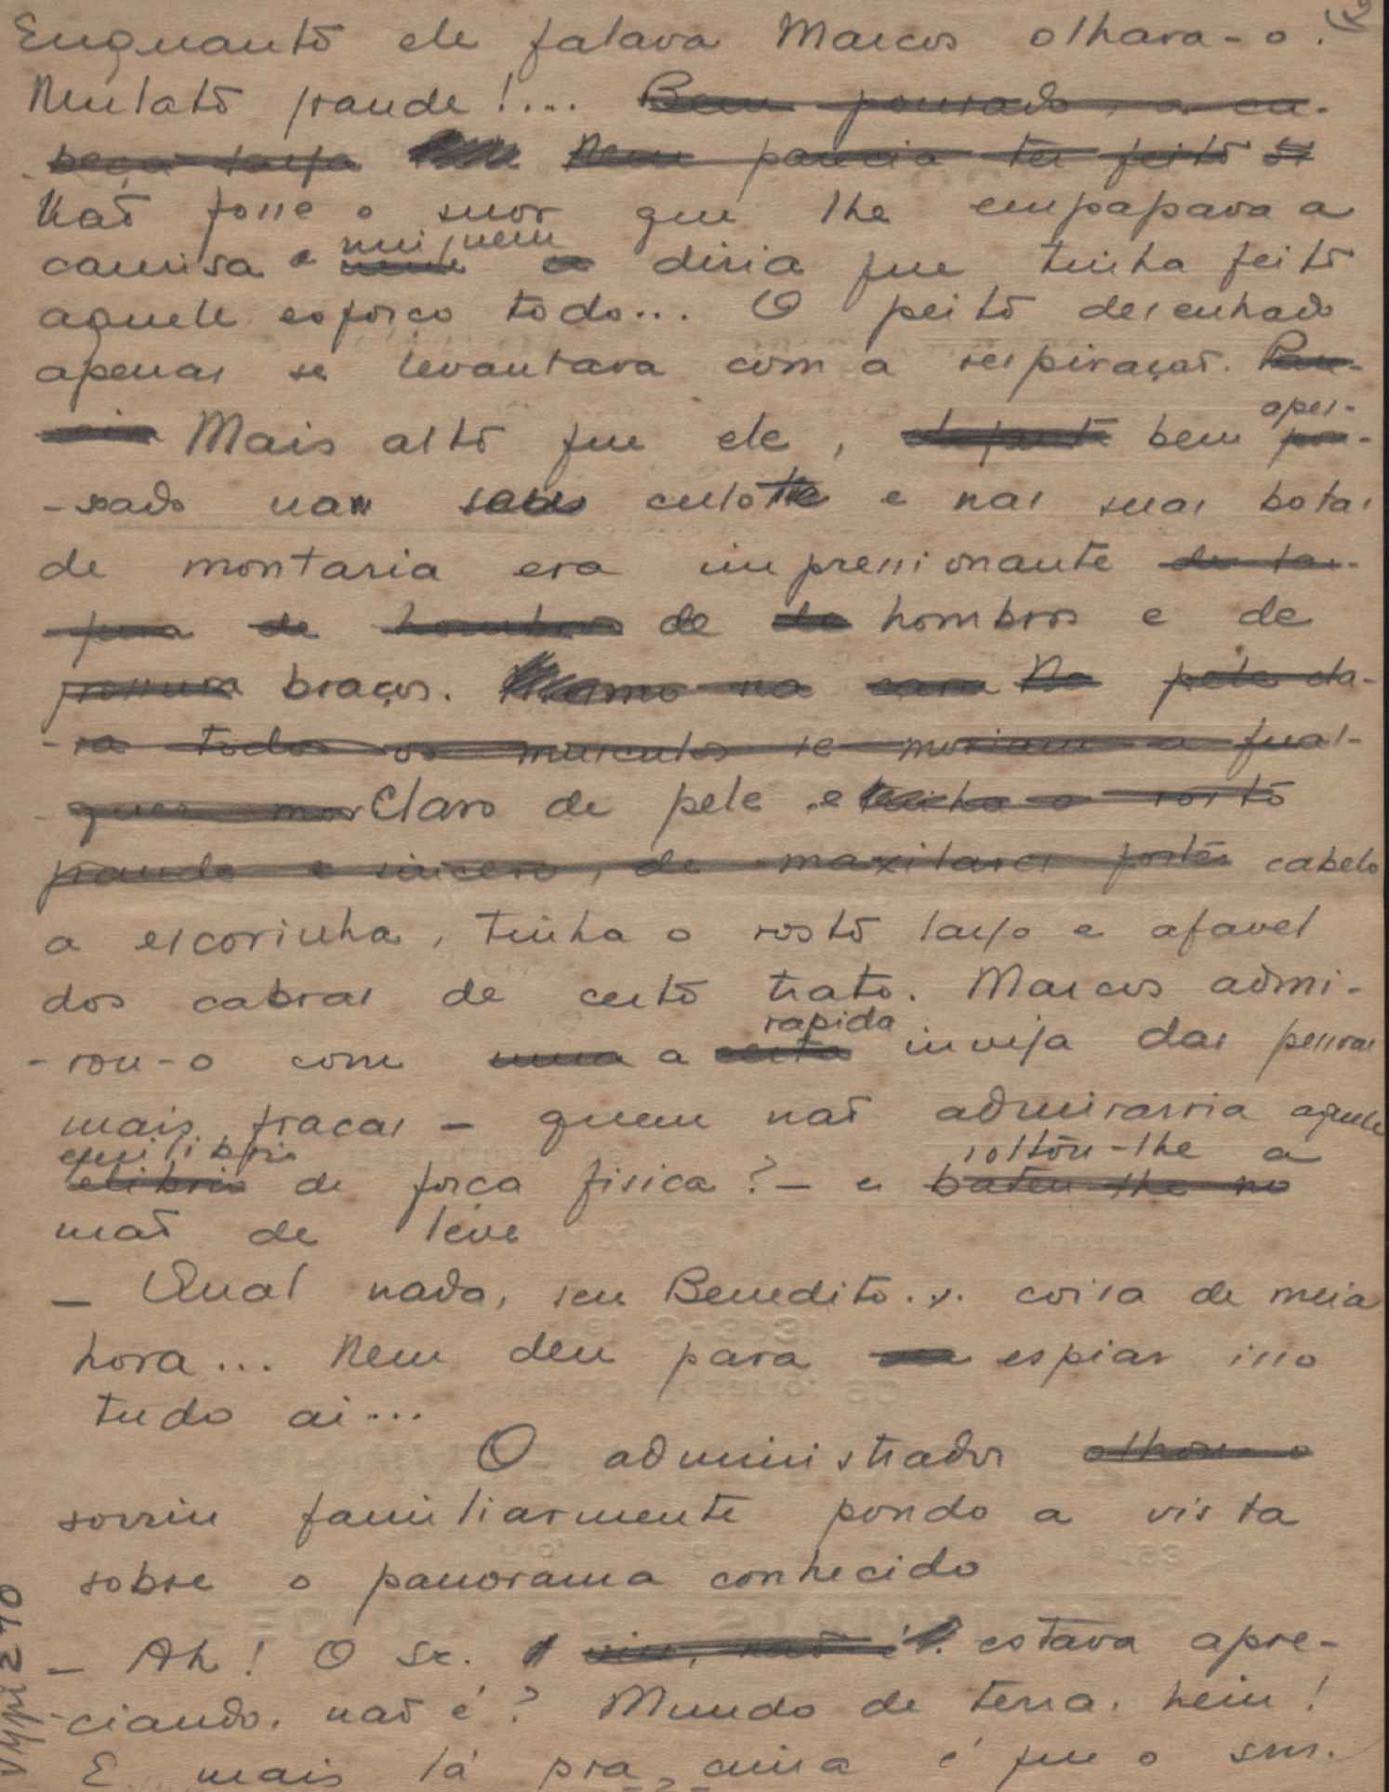 Enquanto ele falava Marcos olhava-o.
Mulato grande!... Bem pousado, a ca-
beça larga Nem parecia ter feito
Não fosse o suor que lhe empapava a
camisa e ninguem diria que tinha feito
aquele esforço todo... O peito desenhado
apenas se levantava com a respiração. Pare-
cia Mais alto que ele, bem aper-
-sado nas seus culotte e nas suas botas
de montaria era impressionante de lar-
gura de hombros de de hombros e de
grossura braços. Mesmo na cara Na pele cla-
-ra todos os musculos se moviam a qual-
quer mov Claro de pele e tinha o rosto
grande e sincero, de maxilares fortes cabelo
a escovinha, tinha o rosto largo e afavel
dos cabras de certo trato. Marcos admi-
-rou-o com uma a certa rapida inveja das pessoas
mais fracas – quem não admiraria aquele
equilibrio de força fisica? – e bateu-lhe no soltou-lhe a
mão de leve
– Qual nada, seu Benedito... coisa de meia
hora... Nem deu para espiar isso
tudo ai...
O administrador olhou o
sorriu familiarmente pondo a vista
sobre o panorama conhecido
– Ah! O Sr. viu, não é estava apre-
-ciando, não é? Mundo de terra, hein!
E mais lá pra cima é que o snr.